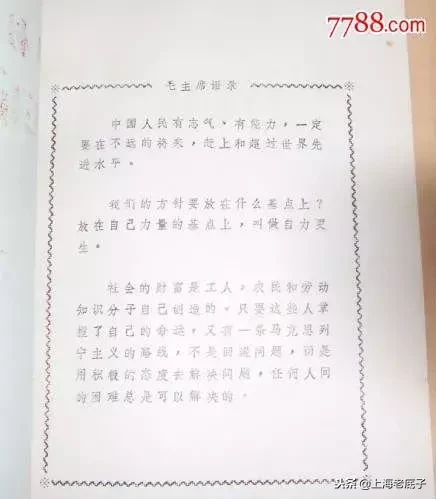 7788.com
毛主席语录
中国人民有志气、有能力，一定
要在不远的将来，赶上和超过世界先
进水平。
我们的方针要放在什么基点上？
放在自己力量的基点上，叫做自力更
生。
社会的财富是工人，农民和劳动
知识分子自己创造的。只要这些人掌
握了自己的命运，又有一条马克思列
宁主义的路线，不是回避问题，而是
用积极的态度去解决问题，任何人间
的困难总是可以解决的。
头条@上海老底子